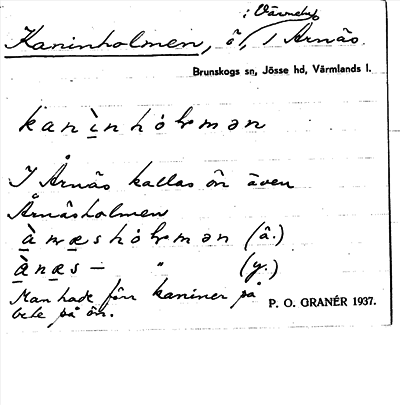 i Värmeln
Kaninholmen, ö, i Årnäs.
Brunskogs sn, Jösse hd, Värmlands l.
kanìnhólmən
I Årnäs kallas ön även
Årnäsholmen
(ä.)
(y.)
Man hade förr kaniner på
bete på ön.
P. O. GRANÉR 1937.